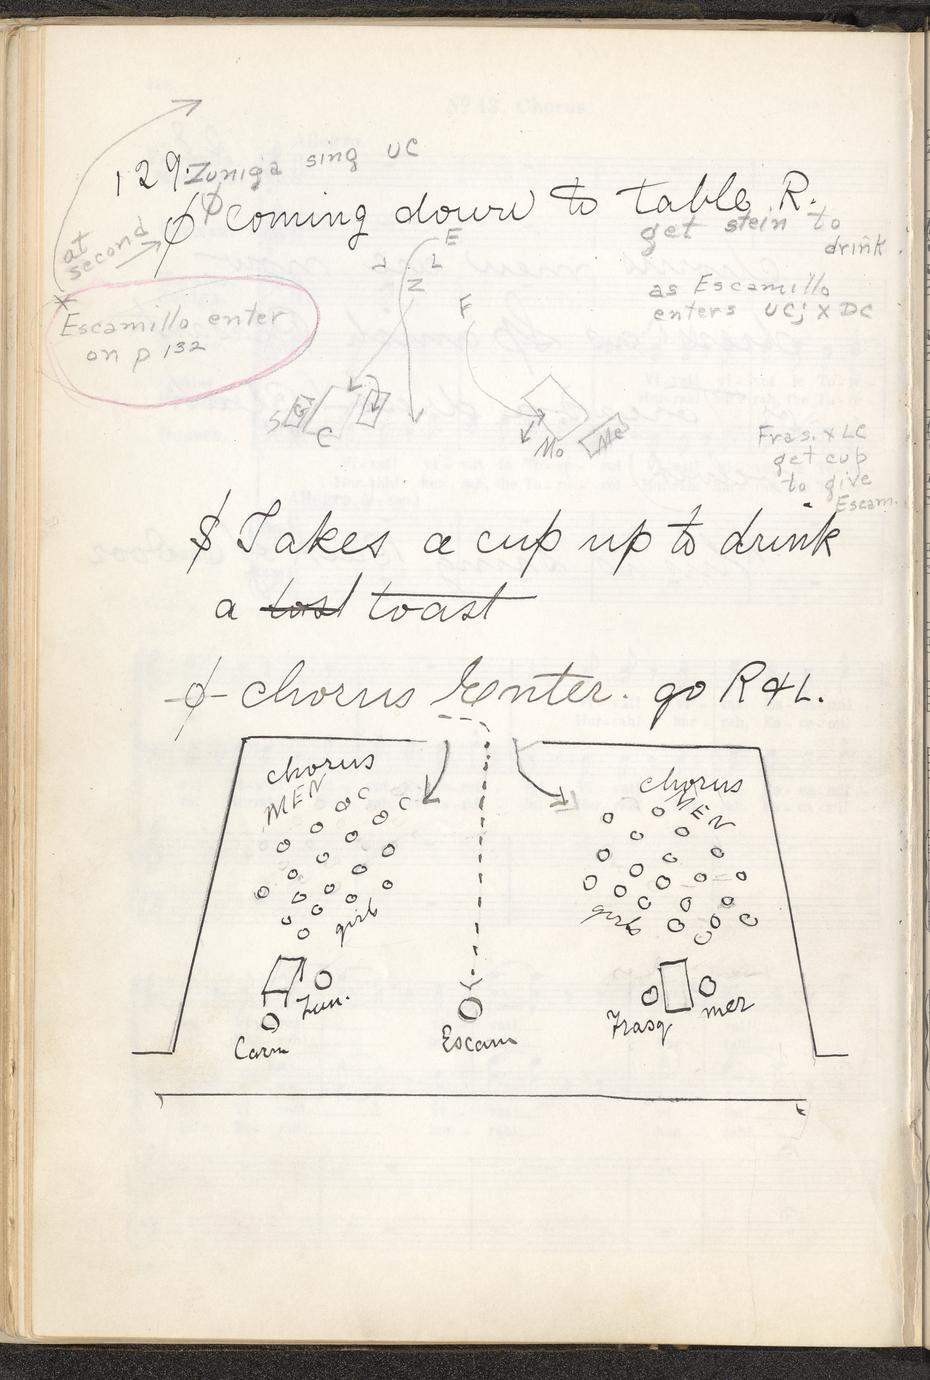 129. Zuniga sing UC
coming down to table R.
get stein to
drink
at
second
E
L
Z
F
as Escamillo
enters UC; X DC
Escamillo enter
on p 132
S
C
Mo
Me
Fras. x LC
get cup
to give
Escam.
Takes a cup up to drink
a tost toast
chorus Enter. go R & L.
chorus
MEN
chorus
MEN
girls
girls
Zun.
Carm
Escam
Frasq
mer